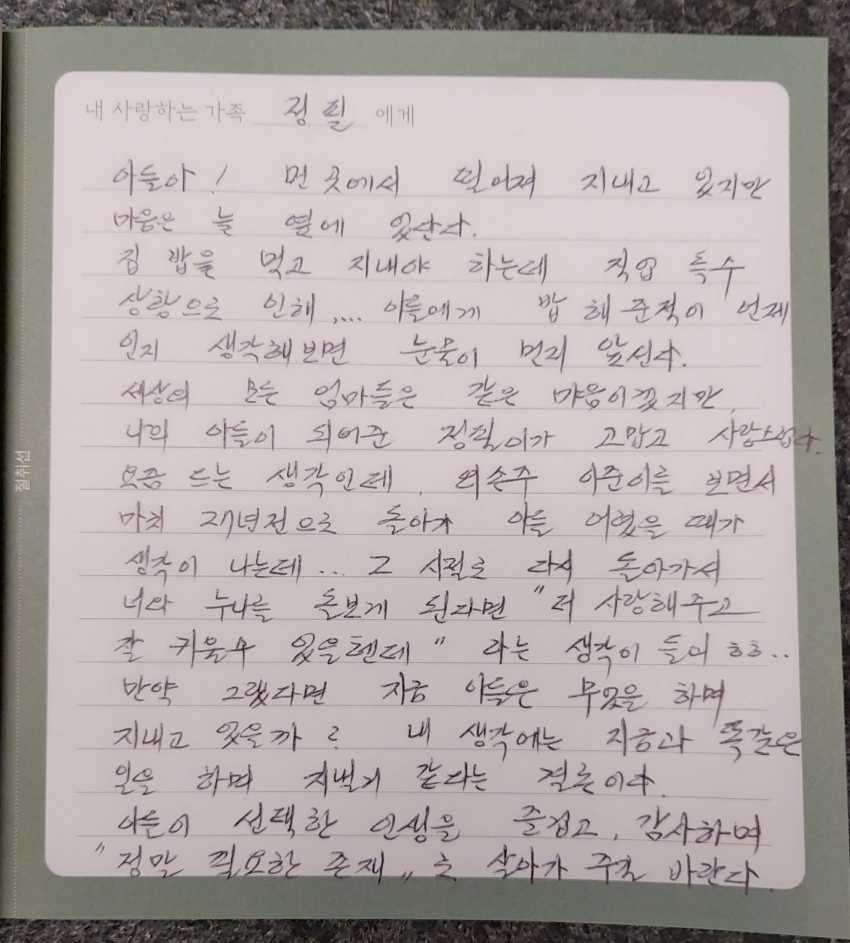 내 사랑하는 가족 정필 에게
아들아! 먼 곳에서 떨어져 지내고 있지만
마음은 늘 옆에 있단다.
집 밥을 먹고 지내야 하는데 직업 특수
상황으로 인해.... 아들에게 밥 해 준적이 언제
인지 생각해보면 눈물이 먼저 앞선다.
세상의 모든 엄마들은 같은 마음이겠지만,
나의 아들이 되어준 정필이가 고맙고 사랑스럽다.
요즘 드는 생각인데, 외손주 아준이를 보면서
마치 27년전으로 돌아가 아들 어렸을 때가
생각이 나는데... 그 시절로 다시 돌아가서
너와 누나를 돌보게 된다면 "더 사랑해주고
잘 키울수 있을텐데" 라는 생각이 들어 ㅎㅎ..
만약 그랬다면 지금 아들은 무엇을 하며
지내고 있을까? 내 생각에는 지금과 똑같은
일을 하며 지낼거 같다는 결론이다.
아들이 선택한 인생을 즐겁고, 감사하며
"정말 필요한 존재"로 살아가 주길 바란다.
절취선